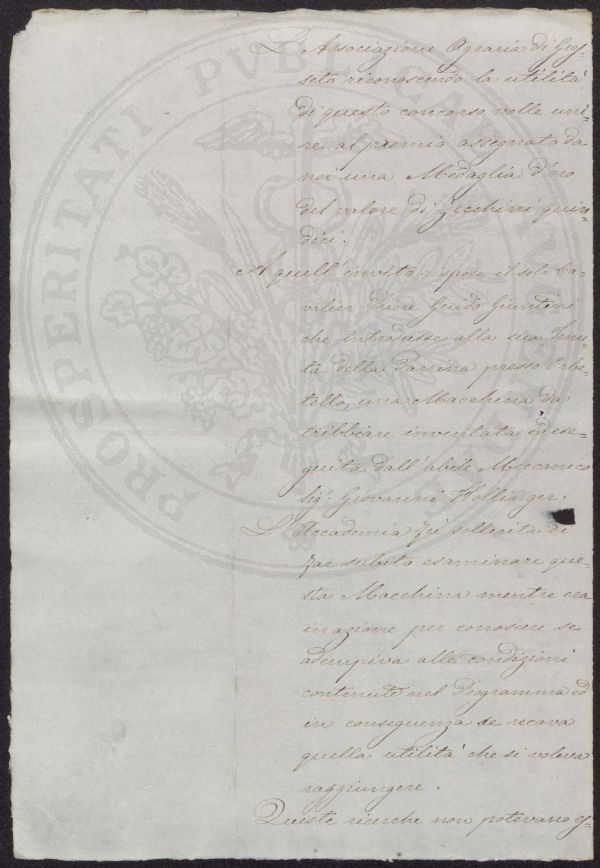 L'Associazione Agraria di Gros-
seto riconoscendo la utilità
di questo concorso volle uni-
re al premio assegnato da
noi una Medaglia d'oro
del valore di Zecchini quin-
dici.
A quell'invito rispose il solo Ca-
valier Priore Guido Giuntini
che introdusse alla sua Tenu-
ta della Parrina presso Orbe-
tello, una Macchina da
tribbiare inventata ed ese-
guita dall'abile Meccanico
Sig.r Giovanni Hollinger.
L'Accademia fu sollecita di
far subito esaminare que-
sta Macchina mentre era
in azione per conoscere se
adempiva alle condizioni
contenute nel Programma ed
in conseguenza se recava
quella utilità che si voleva
raggiungere.
Queste ricerche non potevano es-
PROSPERITATI PVBLICAE